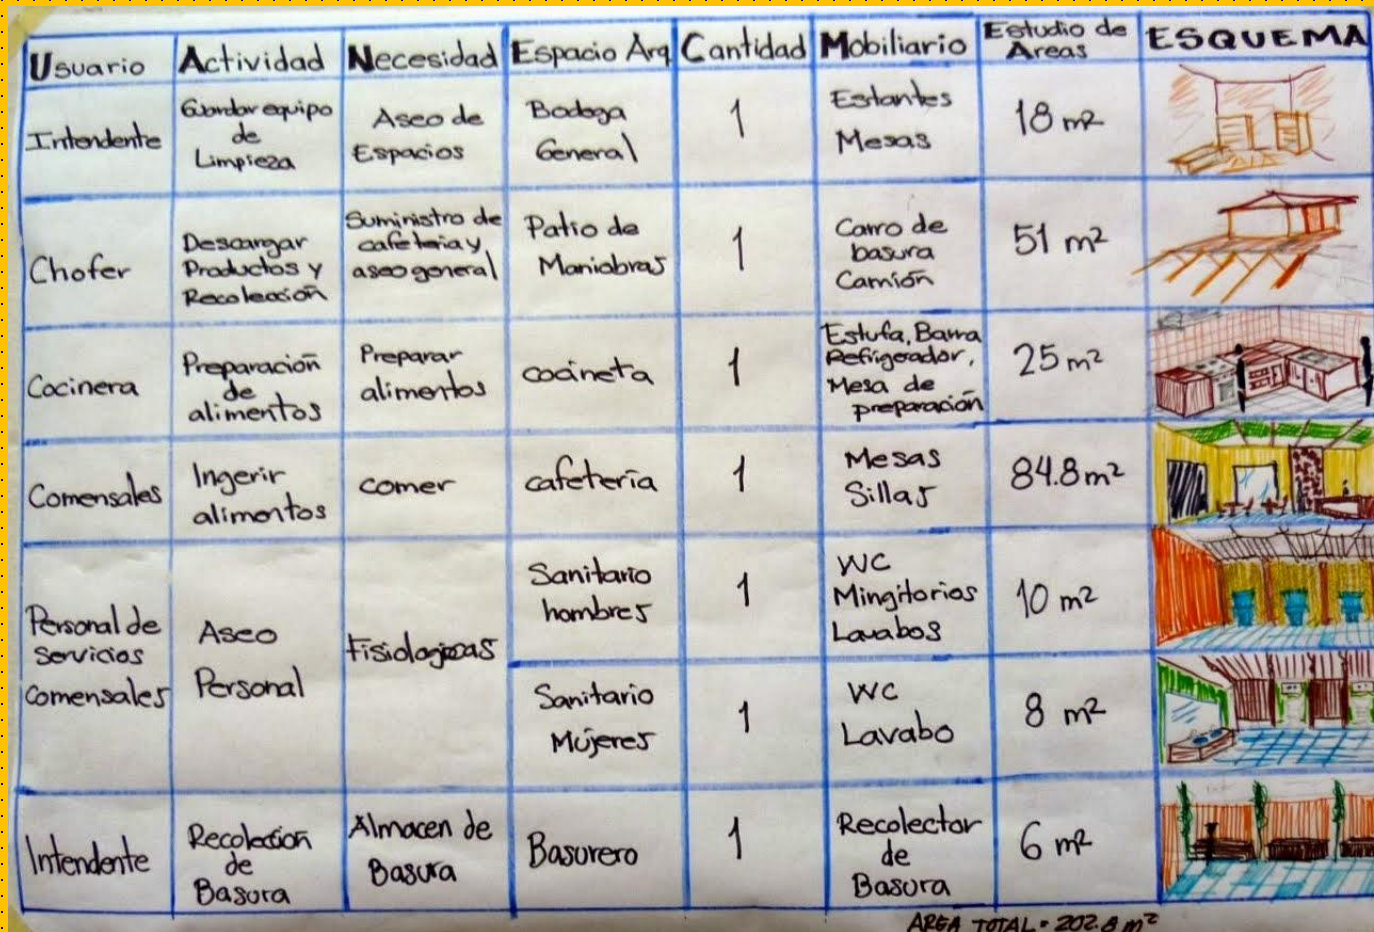 Usuario
Actividad
Necesidad
Espacio Arq
Cantidad
Mobiliario
Estudio de
Areas
ESQUEMA
Intendente
Guardar equipo
de
Limpieza
Aseo de
Espacios
Bodega
General
1
Estantes
Mesas
18 m²
Chofer
Descargar
Productos y
Recolección
Suministro de
cafeteria y
aseo general
Patio de
Maniobras
1
Carro de
basura
Camión
51 m²
Cocinera
Preparación
de
alimentos
Preparar
alimentos
cocineta
1
Estufa, Barra
Refigerador,
Mesa de
preparación
25 m²
Comensales
Ingerir
alimentos
comer
cafetería
1
Mesas
Sillas
84.8 m²
Personal de
servicios
Comensales
Aseo
Personal
Fisiologicas
Sanitario
hombres
1
WC
Mingitorios
Lavabos
10 m²
Sanitario
Mujeres
1
WC
Lavabo
8 m²
Intendente
Recolección
de
Basura
Almacen de
Basura
Basurero
1
Recolector
de
Basura
6 m²
AREA TOTAL = 202.8 m²